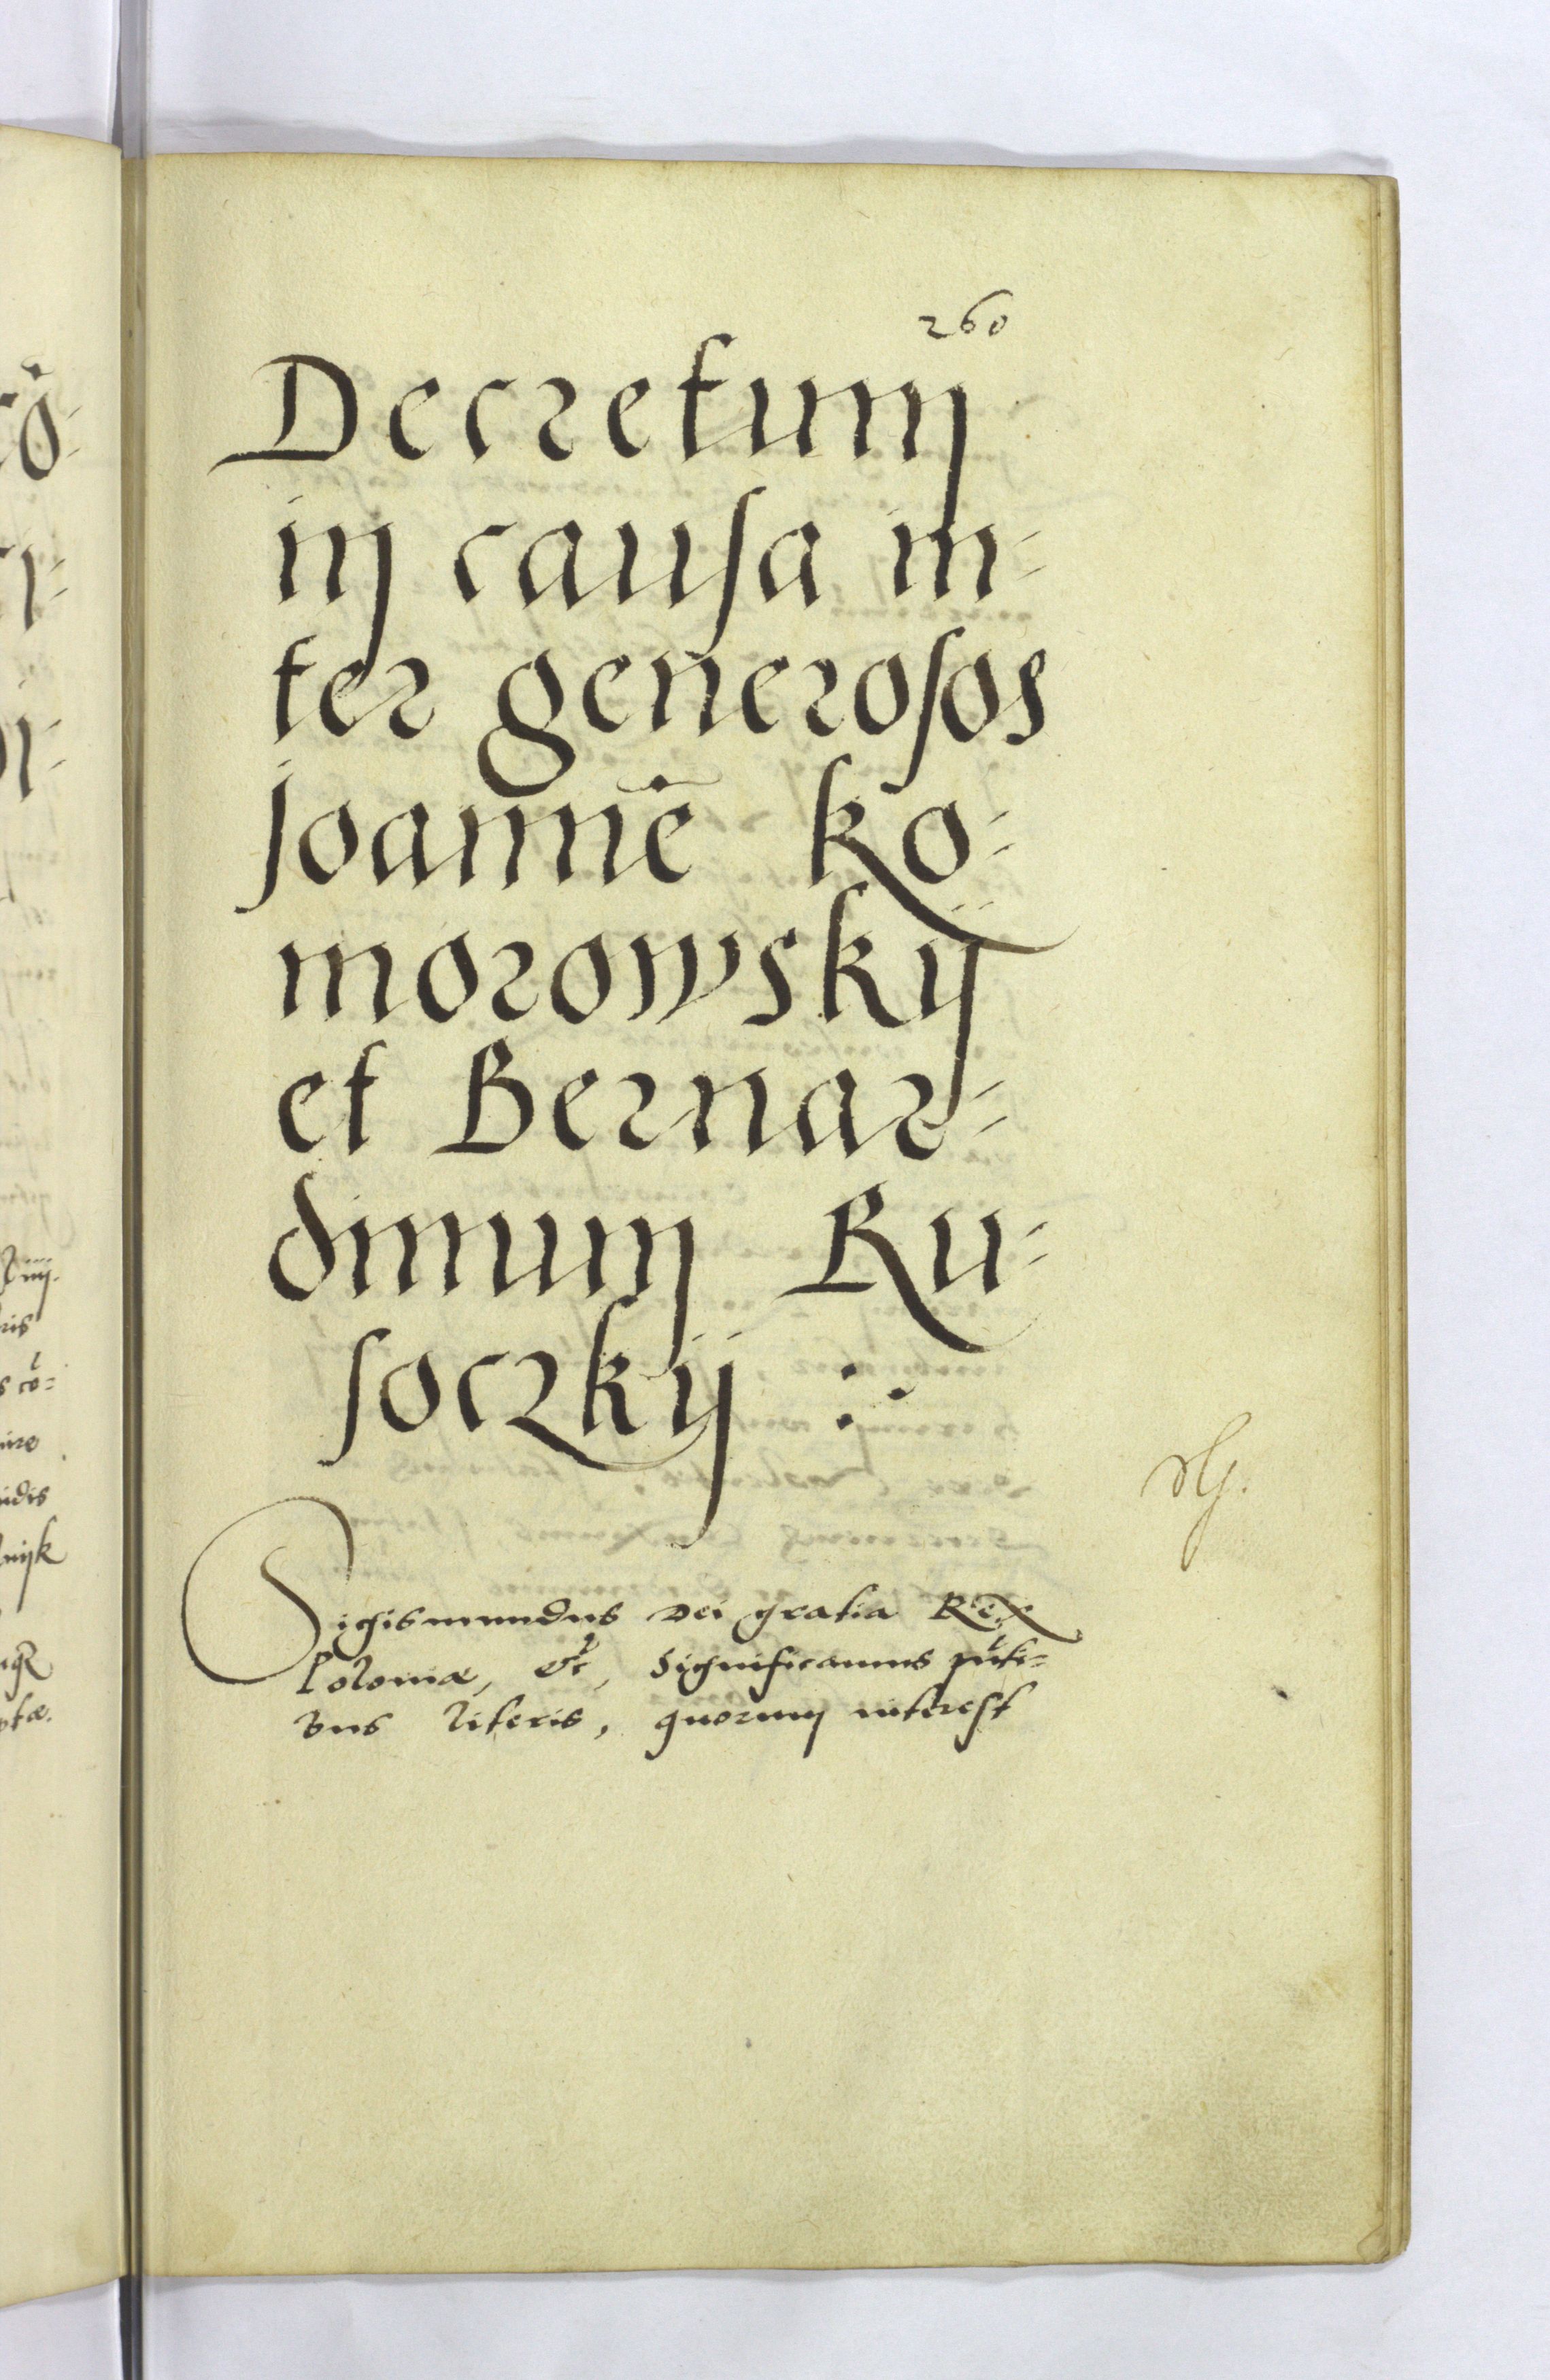 260
Decretum
in causa in-
ter generosos
Joannē Ko-
morowskÿ
et Bernar-
dinum Ru-
soczkÿ
Sigismundus Dei gratia Rex
Poloniæ, etc, Significamus pñti-
bus literis, quorum interest